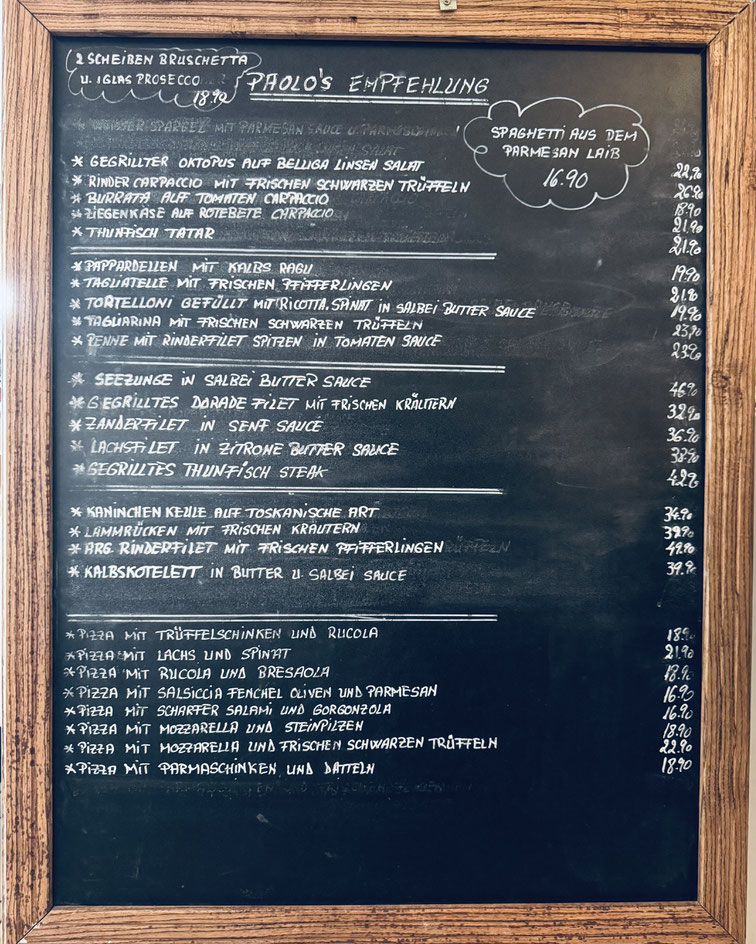 2 SCHEIBEN BRUSCHETTA
U. 1 GLAS PROSECCO
18.90
PAOLO'S EMPFEHLUNG
SPAGHETTI AUS DEM
PARMESAN LAIB
16.90
* GEGRILLTER OKTOPUS AUF BELLIGA LINSEN SALAT 22.90
* RINDER CARPACCIO MIT FRISCHEN SCHWARZEN TRÜFFELN 26.90
* BURRATA AUF TOMATEN CARPACCIO 18.90
* ZIEGENKÄSE AUF ROTEBETE CARPACCIO 21.90
* THUNFISCH TATAR 21.90
* PAPPARDELLEN MIT KALBS RAGU 19.90
* TAGLIATELLE MIT FRISCHEN PFIFFERLINGEN 21.90
* TORTELLONI GEFÜLLT MIT RICOTTA, SPINAT IN SALBEI BUTTER SAUCE 19.90
* TAGLIARINA MIT FRISCHEN SCHWARZEN TRÜFFELN 23.90
* PENNE MIT RINDERFILET SPITZEN IN TOMATEN SAUCE 23.90
* SEEZUNGE IN SALBEI BUTTER SAUCE 46.90
* GEGRILLTES DORADE FILET MIT FRISCHEN KRÄUTERN 32.90
* ZANDERFILET IN SENF SAUCE 36.90
* LACHSFILET IN ZITRONE BUTTER SAUCE 38.90
* GEGRILLTES THUNFISCH STEAK 42.90
* KANINCHEN KEULE AUF TOSKANISCHE ART 34.90
* LAMMRÜCKEN MIT FRISCHEN KRÄUTERN 39.90
* ARG RINDERFILET MIT FRISCHEN PFIFFERLINGEN 49.90
* KALBSKOTELETT IN BUTTER U. SALBEI SAUCE 39.90
* PIZZA MIT TRÜFFELSCHINKEN UND RUCOLA 18.90
* PIZZA MIT LACHS UND SPINAT 21.90
* PIZZA MIT RUCOLA UND BRESAOLA 18.90
* PIZZA MIT SALSICCIA FENCHEL OLIVEN UND PARMESAN 16.90
* PIZZA MIT SCHARFER SALAMI UND GORGONZOLA 16.90
* PIZZA MIT MOZZARELLA UND STEINPILZEN 18.90
* PIZZA MIT MOZZARELLA UND FRISCHEN SCHWARZEN TRÜFFELN 22.90
* PIZZA MIT PARMASCHINKEN UND DATTELN 18.90